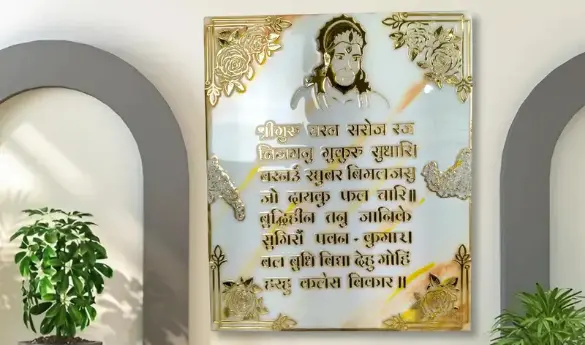 श्रीगुरु चरन सरोज रज
निजमनु मुकुरु सुधारि।
बरनउँ रघुबर बिमलजसु
जो दायकु फल चारि॥
बुद्धिहीन तनु जानिके
सुमिरौं पवन - कुमार।
बल बुधि बिद्या देहु मोहि
हरहु कलेस बिकार॥